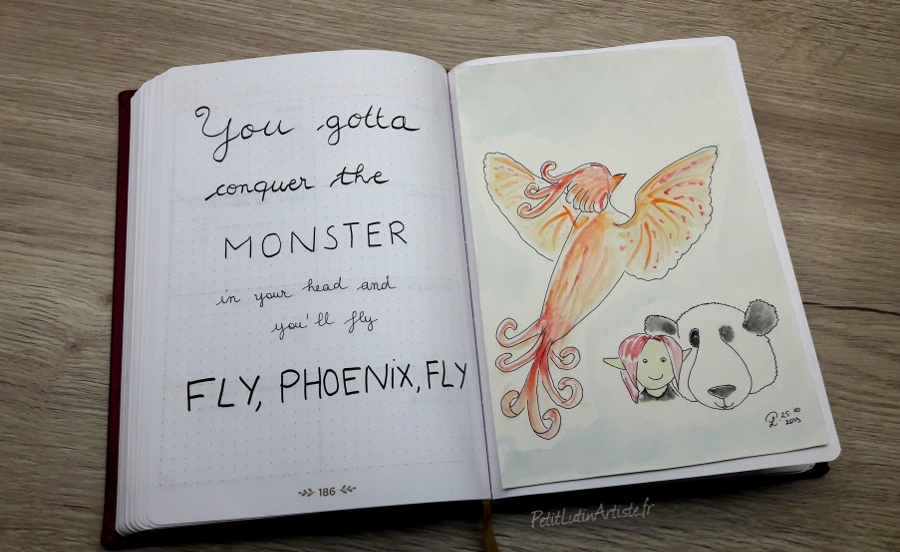 You gotta
conquer the
MONSTER
in your head and
you'll fly
FLY, PHOENiX, FLY
186
25.10
2019
PetitLutinArtiste.fr